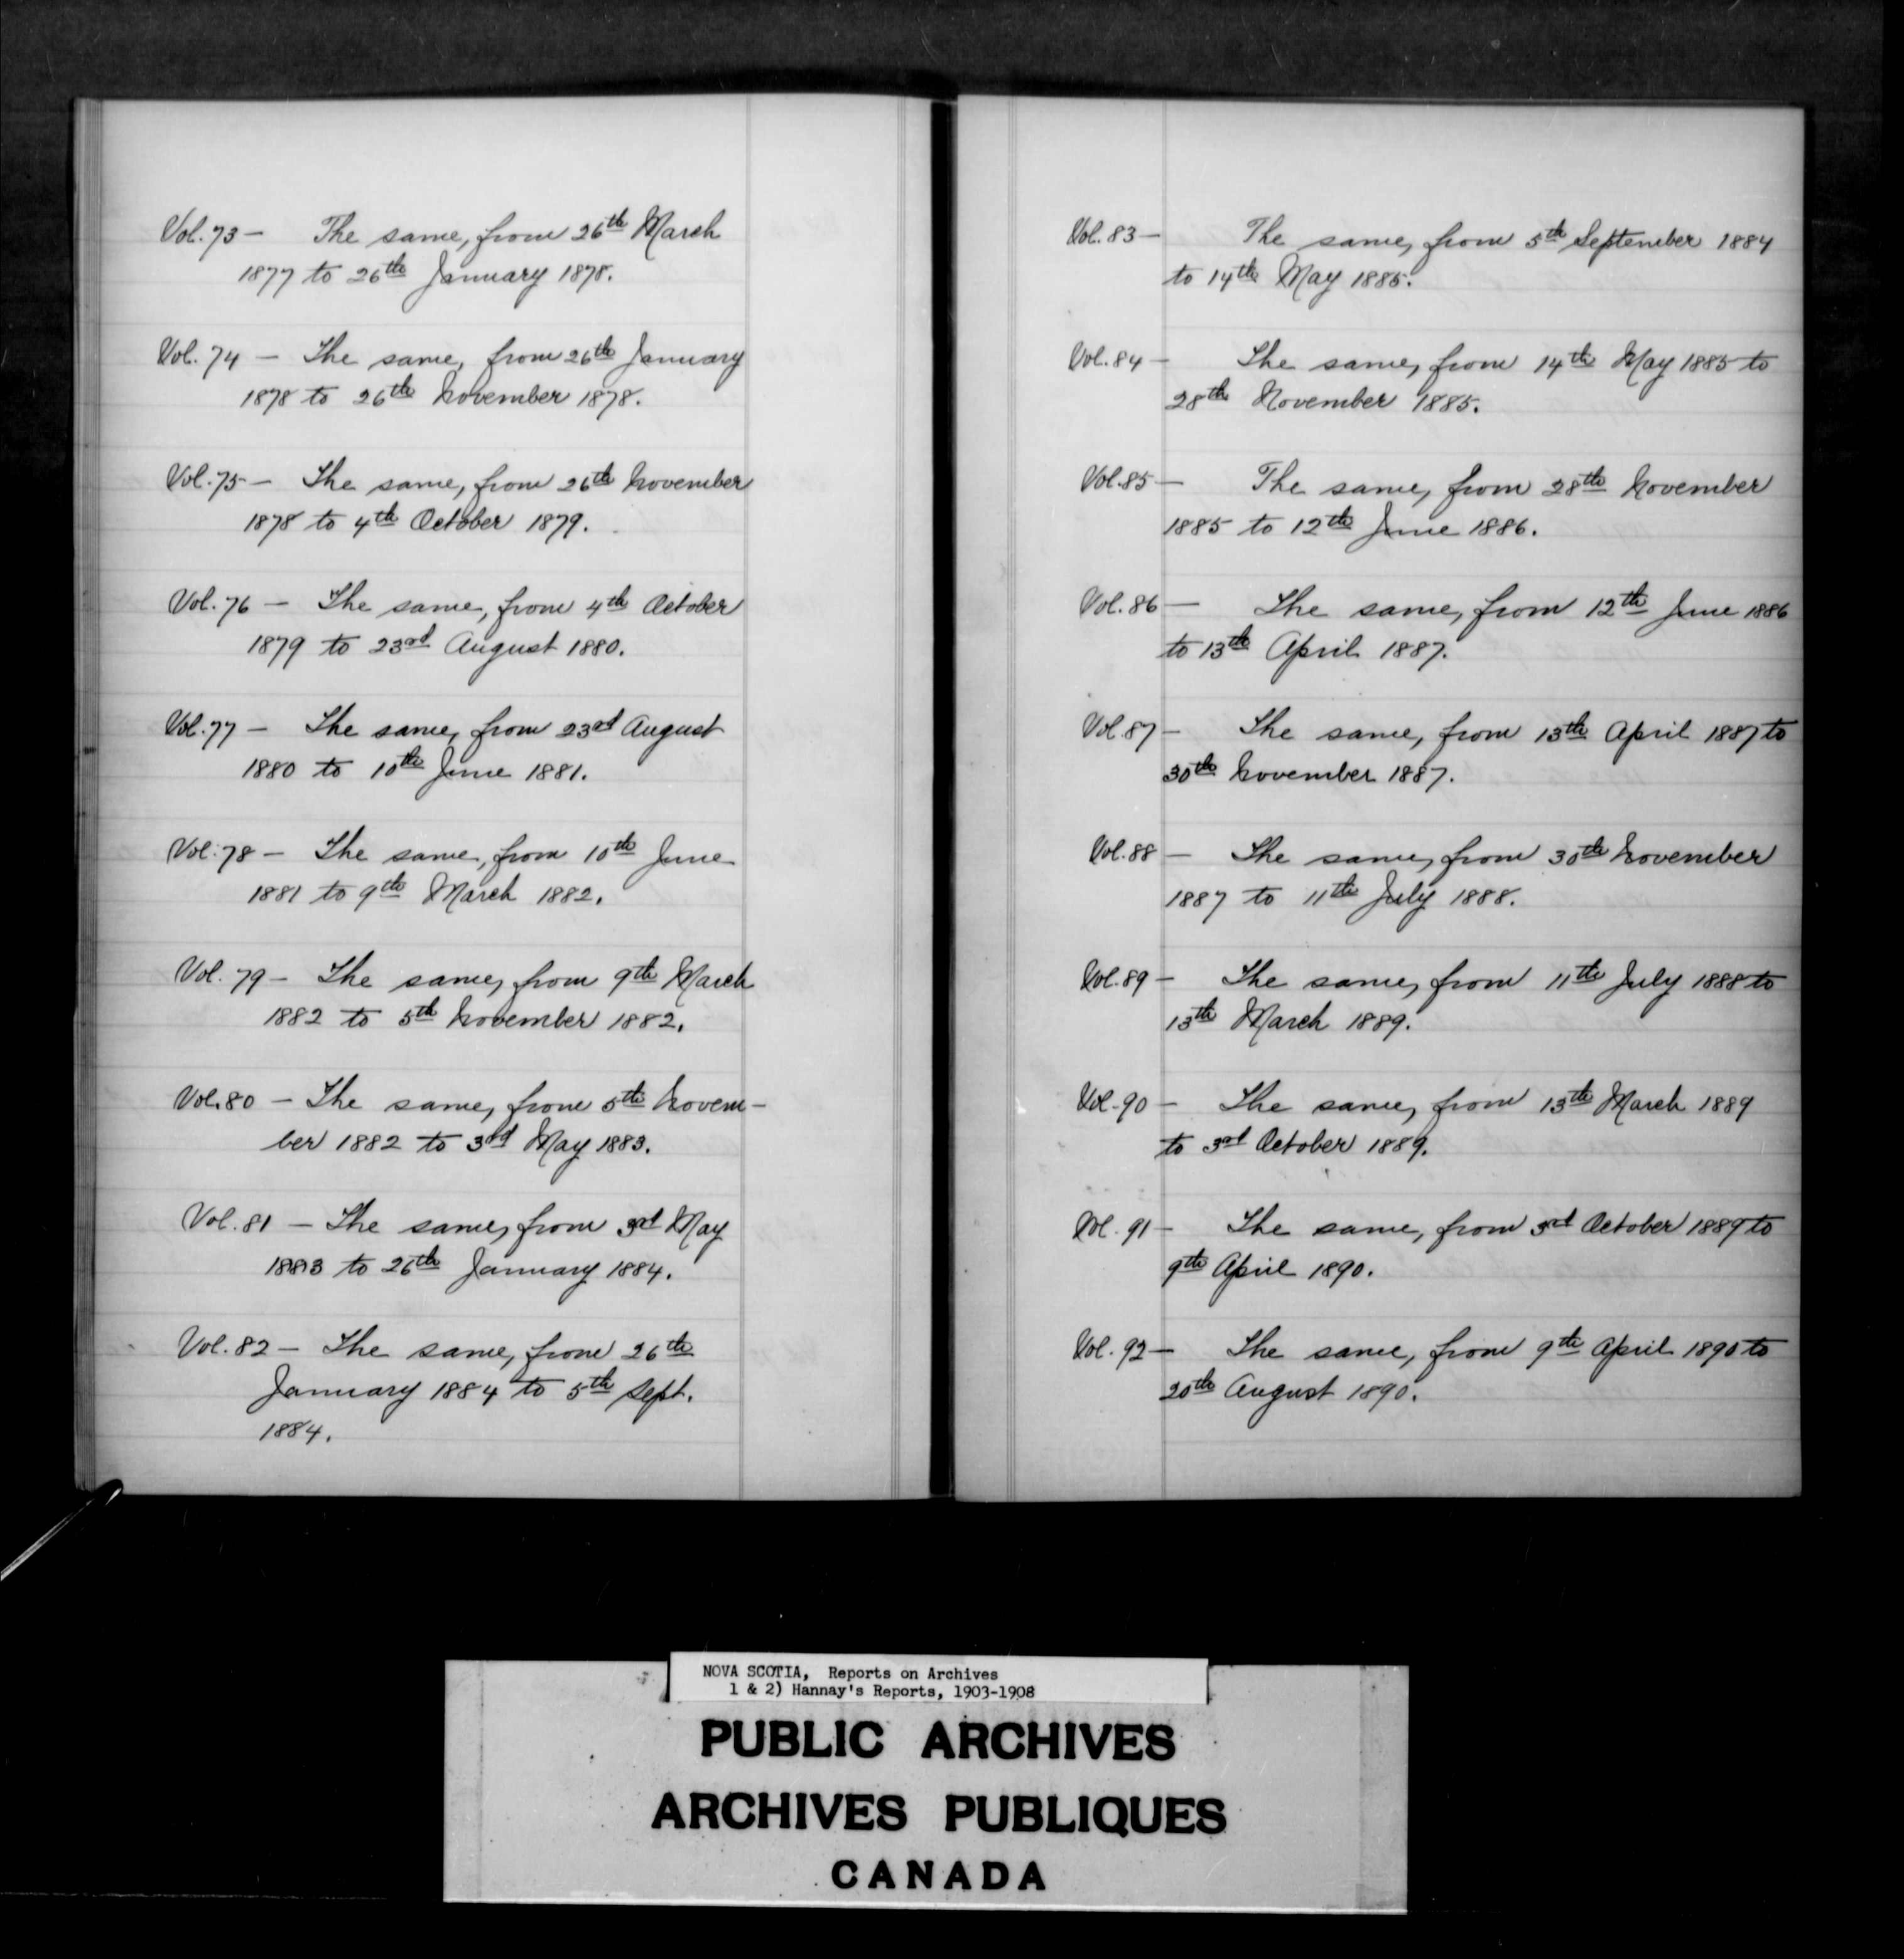 Vol. 73 — The same, from 26th March
1877 to 26th January 1878.
Vol. 74 — The same, from 26th January
1878 to 26th November 1878.
Vol. 75 — The same, from 26th November
1878 to 4th October 1879.
Vol. 76 — The same, from 4th October
1879 to 23rd August 1880.
Vol. 77 — The same, from 23rd August
1880 to 10th June 1881.
Vol. 78 — The same, from 10th June
1881 to 9th March 1882.
Vol. 79 — The same, from 9th March
1882 to 5th November 1882.
Vol. 80 — The same, from 5th Novem-
ber 1882 to 3rd May 1883.
Vol. 81 — The same, from 3rd May
1883 to 26th January 1884.
Vol. 82 — The same, from 26th
January 1884 to 5th Sept.
1884.
Vol. 83 — The same, from 5th September 1884
to 14th May 1885.
Vol. 84 — The same, from 14th May 1885 to
28th November 1885.
Vol. 85 — The same, from 28th November
1885 to 12th June 1886.
Vol. 86 — The same, from 12th June 1886
to 13th April 1887.
Vol. 87 — The same, from 13th April 1887 to
30th November 1887.
Vol. 88 — The same, from 30th November
1887 to 11th July 1888.
Vol. 89 — The same, from 11th July 1888 to
13th March 1889.
Vol. 90 — The same, from 13th March 1889
to 3rd October 1889.
Vol. 91 — The same, from 3rd October 1889 to
9th April 1890.
Vol. 92 — The same, from 9th April 1890 to
20th August 1890.
NOVA SCOTIA, Reports on Archives
1 & 2) Hannay's Reports, 1903-1908
PUBLIC ARCHIVES
ARCHIVES PUBLIQUES
CANADA